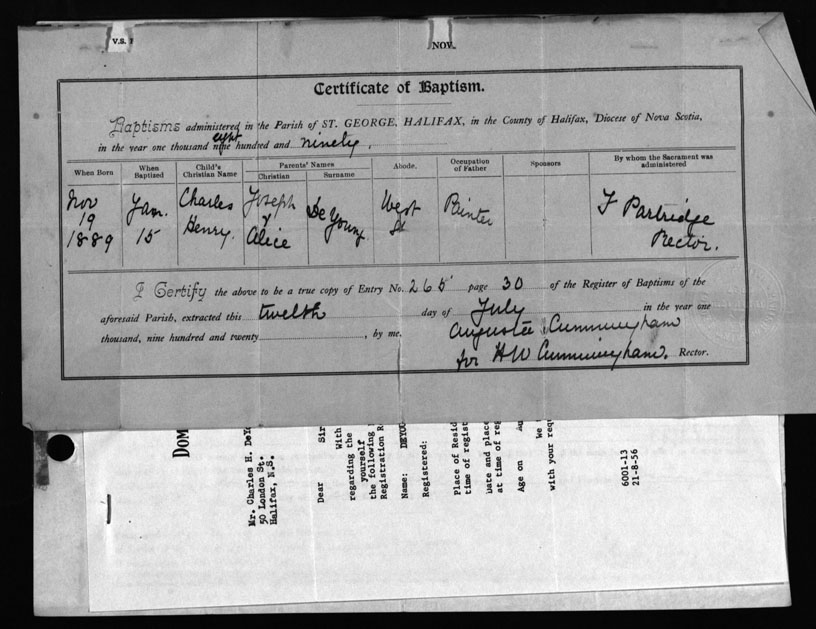 V.S.
NOV.
Certificate of Baptism.
Baptisms administered in the Parish of ST. GEORGE, HALIFAX, in the County of Halifax, Diocese of Nova Scotia,
in the year one thousand nine eight hundred and ninety.
When Born
When Baptized
Child's Christian Name
Parents' Names
Christian
Surname
Abode.
Occupation of Father
Sponsors
By whom the Sacrament was administered
Nov 19 1889
Jan. 15
Charles Henry.
Joseph & Alice
De Young
West St
Painter
F Partridge Rector.
I Certify the above to be a true copy of Entry No. 265 page 30 of the Register of Baptisms of the
aforesaid Parish, extracted this twelfth day of July in the year one
thousand, nine hundred and twenty , by me. Augusta Cunningham
for H W Cunningham. Rector.
DOM
Mr. Charles H. DeYo
50 London St.
Halifax, N.S.
Dear Sir
With
regarding the
yourself
the following
Registration R
Name: DEYOU
Registered:
Place of Resid
time of regist
Date and place
at time of reg
Age on
We
with your requ
6001-13
21-8-56